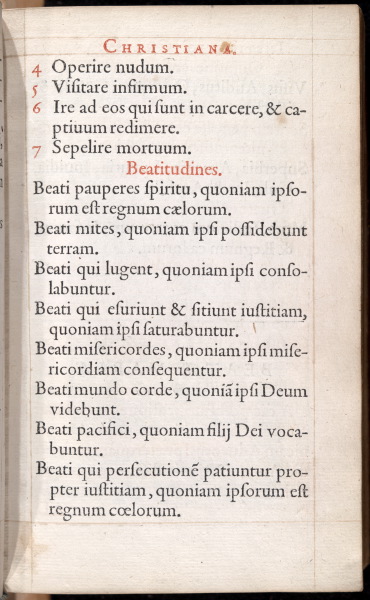 CHRISTIANA.
4 Operire nudum.
5 Viſitare infirmum.
6 Ire ad eos qui ſunt in carcere, & ca-
ptiuum redimere.
7 Sepelire mortuum.
Beatitudines.
Beati pauperes ſpiritu, quoniam ipſo-
rum eſt regnum cælorum.
Beati mites, quoniam ipſi poſſidebunt
terram.
Beati qui lugent, quoniam ipſi conſo-
labuntur.
Beati qui eſuriunt & ſitiunt iuſtitiam,
quoniam ipſi ſaturabuntur.
Beati miſericordes, quoniam ipſi miſe-
ricordiam conſequentur.
Beati mundo corde, quoniã ipſi Deum
videbunt.
Beati pacifici, quoniam filij Dei voca-
buntur.
Beati qui perſecutionē patiuntur pro-
pter iuſtitiam, quoniam ipſorum eſt
regnum cœlorum.